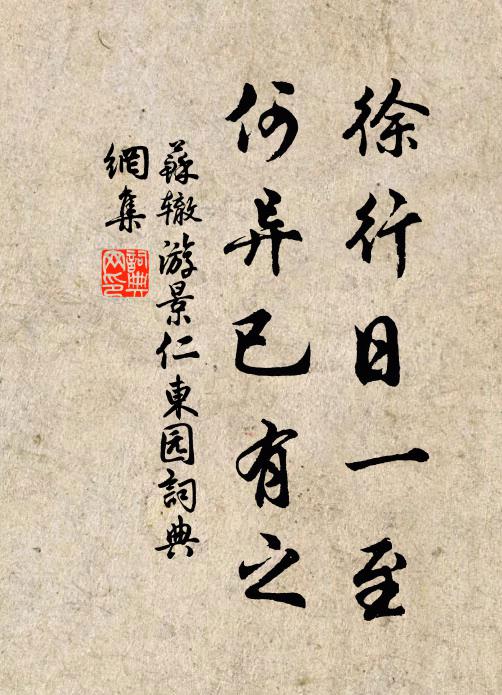 徐行日一至
何异已有之
蘇辙游景仁東园詞典
網集
詞典
网印